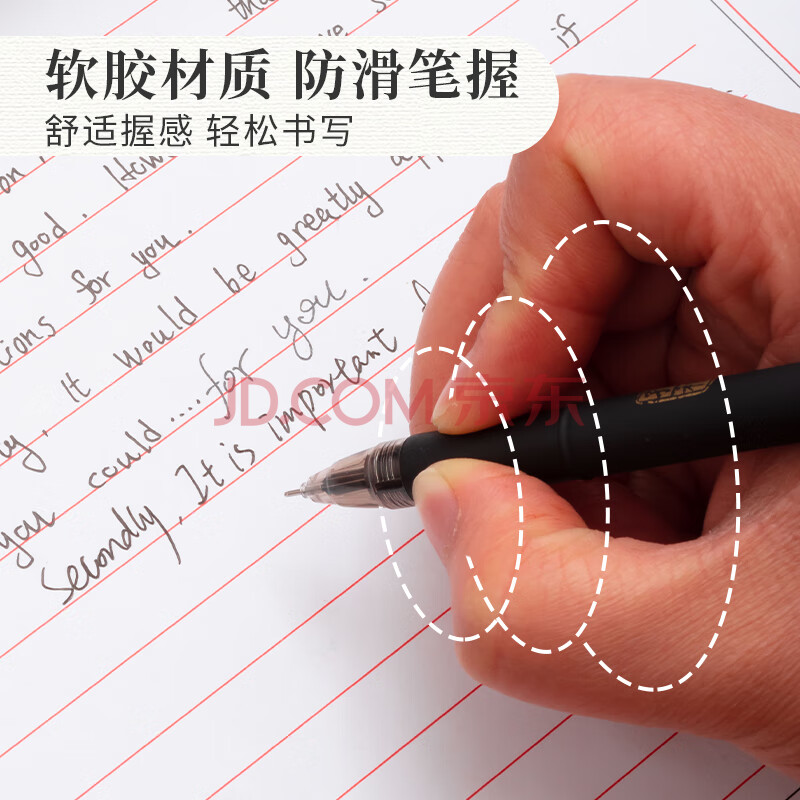 软胶材质 防滑笔握
舒适握感 轻松书写
tha
if
on
good. How
tions for you.
ly, it would be greatly a
you could.....for you.
Secondly, It is important
JD.COM 京东